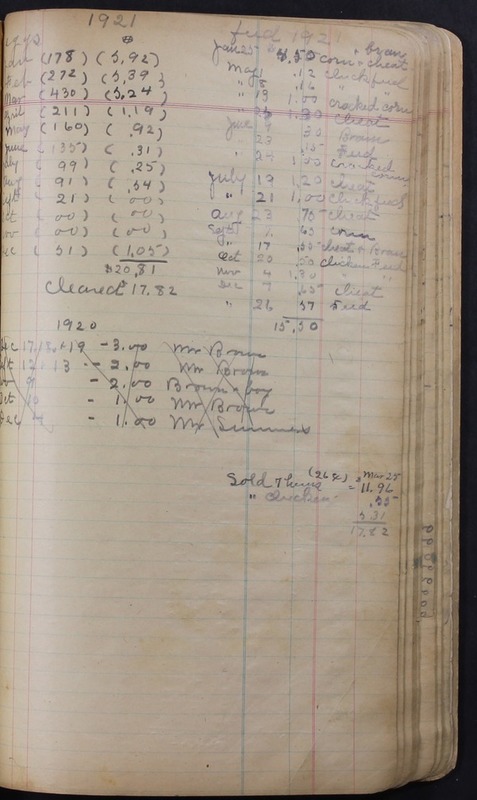 1921
eggs $
Jan (178) (5,92)
Feb (272) (5,39)
Mar (430) (5,24)
April (211) (1,19)
May (160) (.92)
June (135) (.31)
July (99) (.25)
Aug (91) (.54)
Sept (21) (00)
Oct (00) (00)
Nov (00) (00)
Dec (51) (1.05)
$20,81
Cleared 17.82
feed 1921
Jan 25 4.50 corn + cheat " bran
May 1 .12 chick feed
" 8 .16 " "
" 19 1.00 cracked corn
" 1.30 cheat
June 30 Bran
" 23 .15 Feed
" 24 1.50 cracked corn
July 19 1,20 cheat
" 21 1,00 chick feed
Aug 23 75 cheat
Sept 65 corn
" 17 .50 cheat + Bran
Oct 20 .50 chicken Feed
Nov 4 1.30 " "
Dec 7 .65 cheat
" 26 57 Feed
15,50
1920
Dec 17, 18, +19 - 3.00 Mr Brown
Oct 12 + 13 - 2.00 Mr Brown
- 2.00 Brown + boy
Oct - 1.00 Mr Brown
Dec - 1.00 Mr Summers
Sold 7 hens (26¢) Mar 25 = 11.96
" chicken .55
5 31
17.82